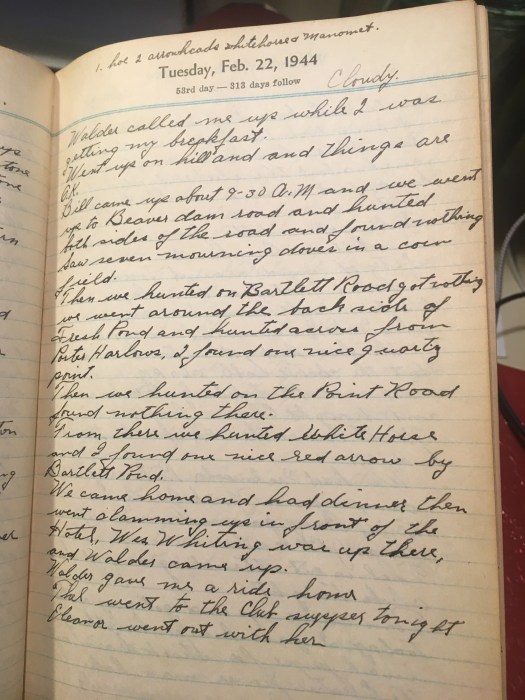 1. hoe 2 arrowheads whitehorse & Manomet.
Tuesday, Feb. 22, 1944
53rd day — 313 days follow
Cloudy.
Walder called me up while I was
getting my breakfast.
Went up on hill and and things are
O.K.
Bill came up about 9-30 A.M and we went
up to Beaver dam road and hunted
both sides of the road and found nothing
Saw seven mourning doves in a corn
field.
Then we hunted on Bartlett Road, got nothing
we went around the back side of
Fresh Pond and hunted across from
Harlows, I found one nice quartz
point.
Then we hunted on the Point Road
found nothing there.
From there we hunted White Horse
and I found one nice red arrow by
Bartlett Pond.
We came home and had dinner then
went clamming up in front of the
Hotel, Wes Whiting was up there,
and Walder came up.
Walder gave me a ride home
went to the Club supper tonight
Eleanor went out with her